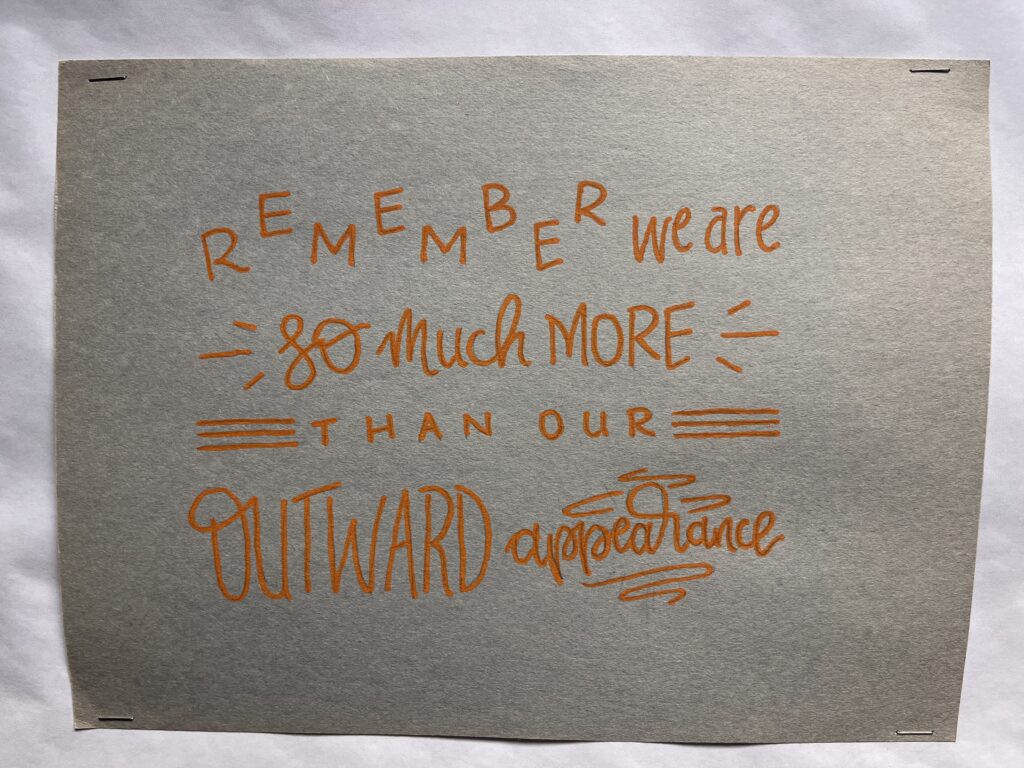 REMEMBER we are
so much MORE
THAN OUR
OUTWARD appearance